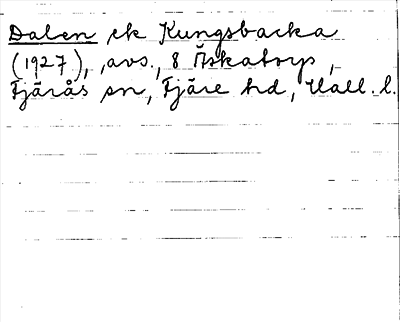 Dalen ek Kungsbacka
(1927), avs., 8 Åskatorp,
Fjärås sn, Fjäre hd, Hall. l.